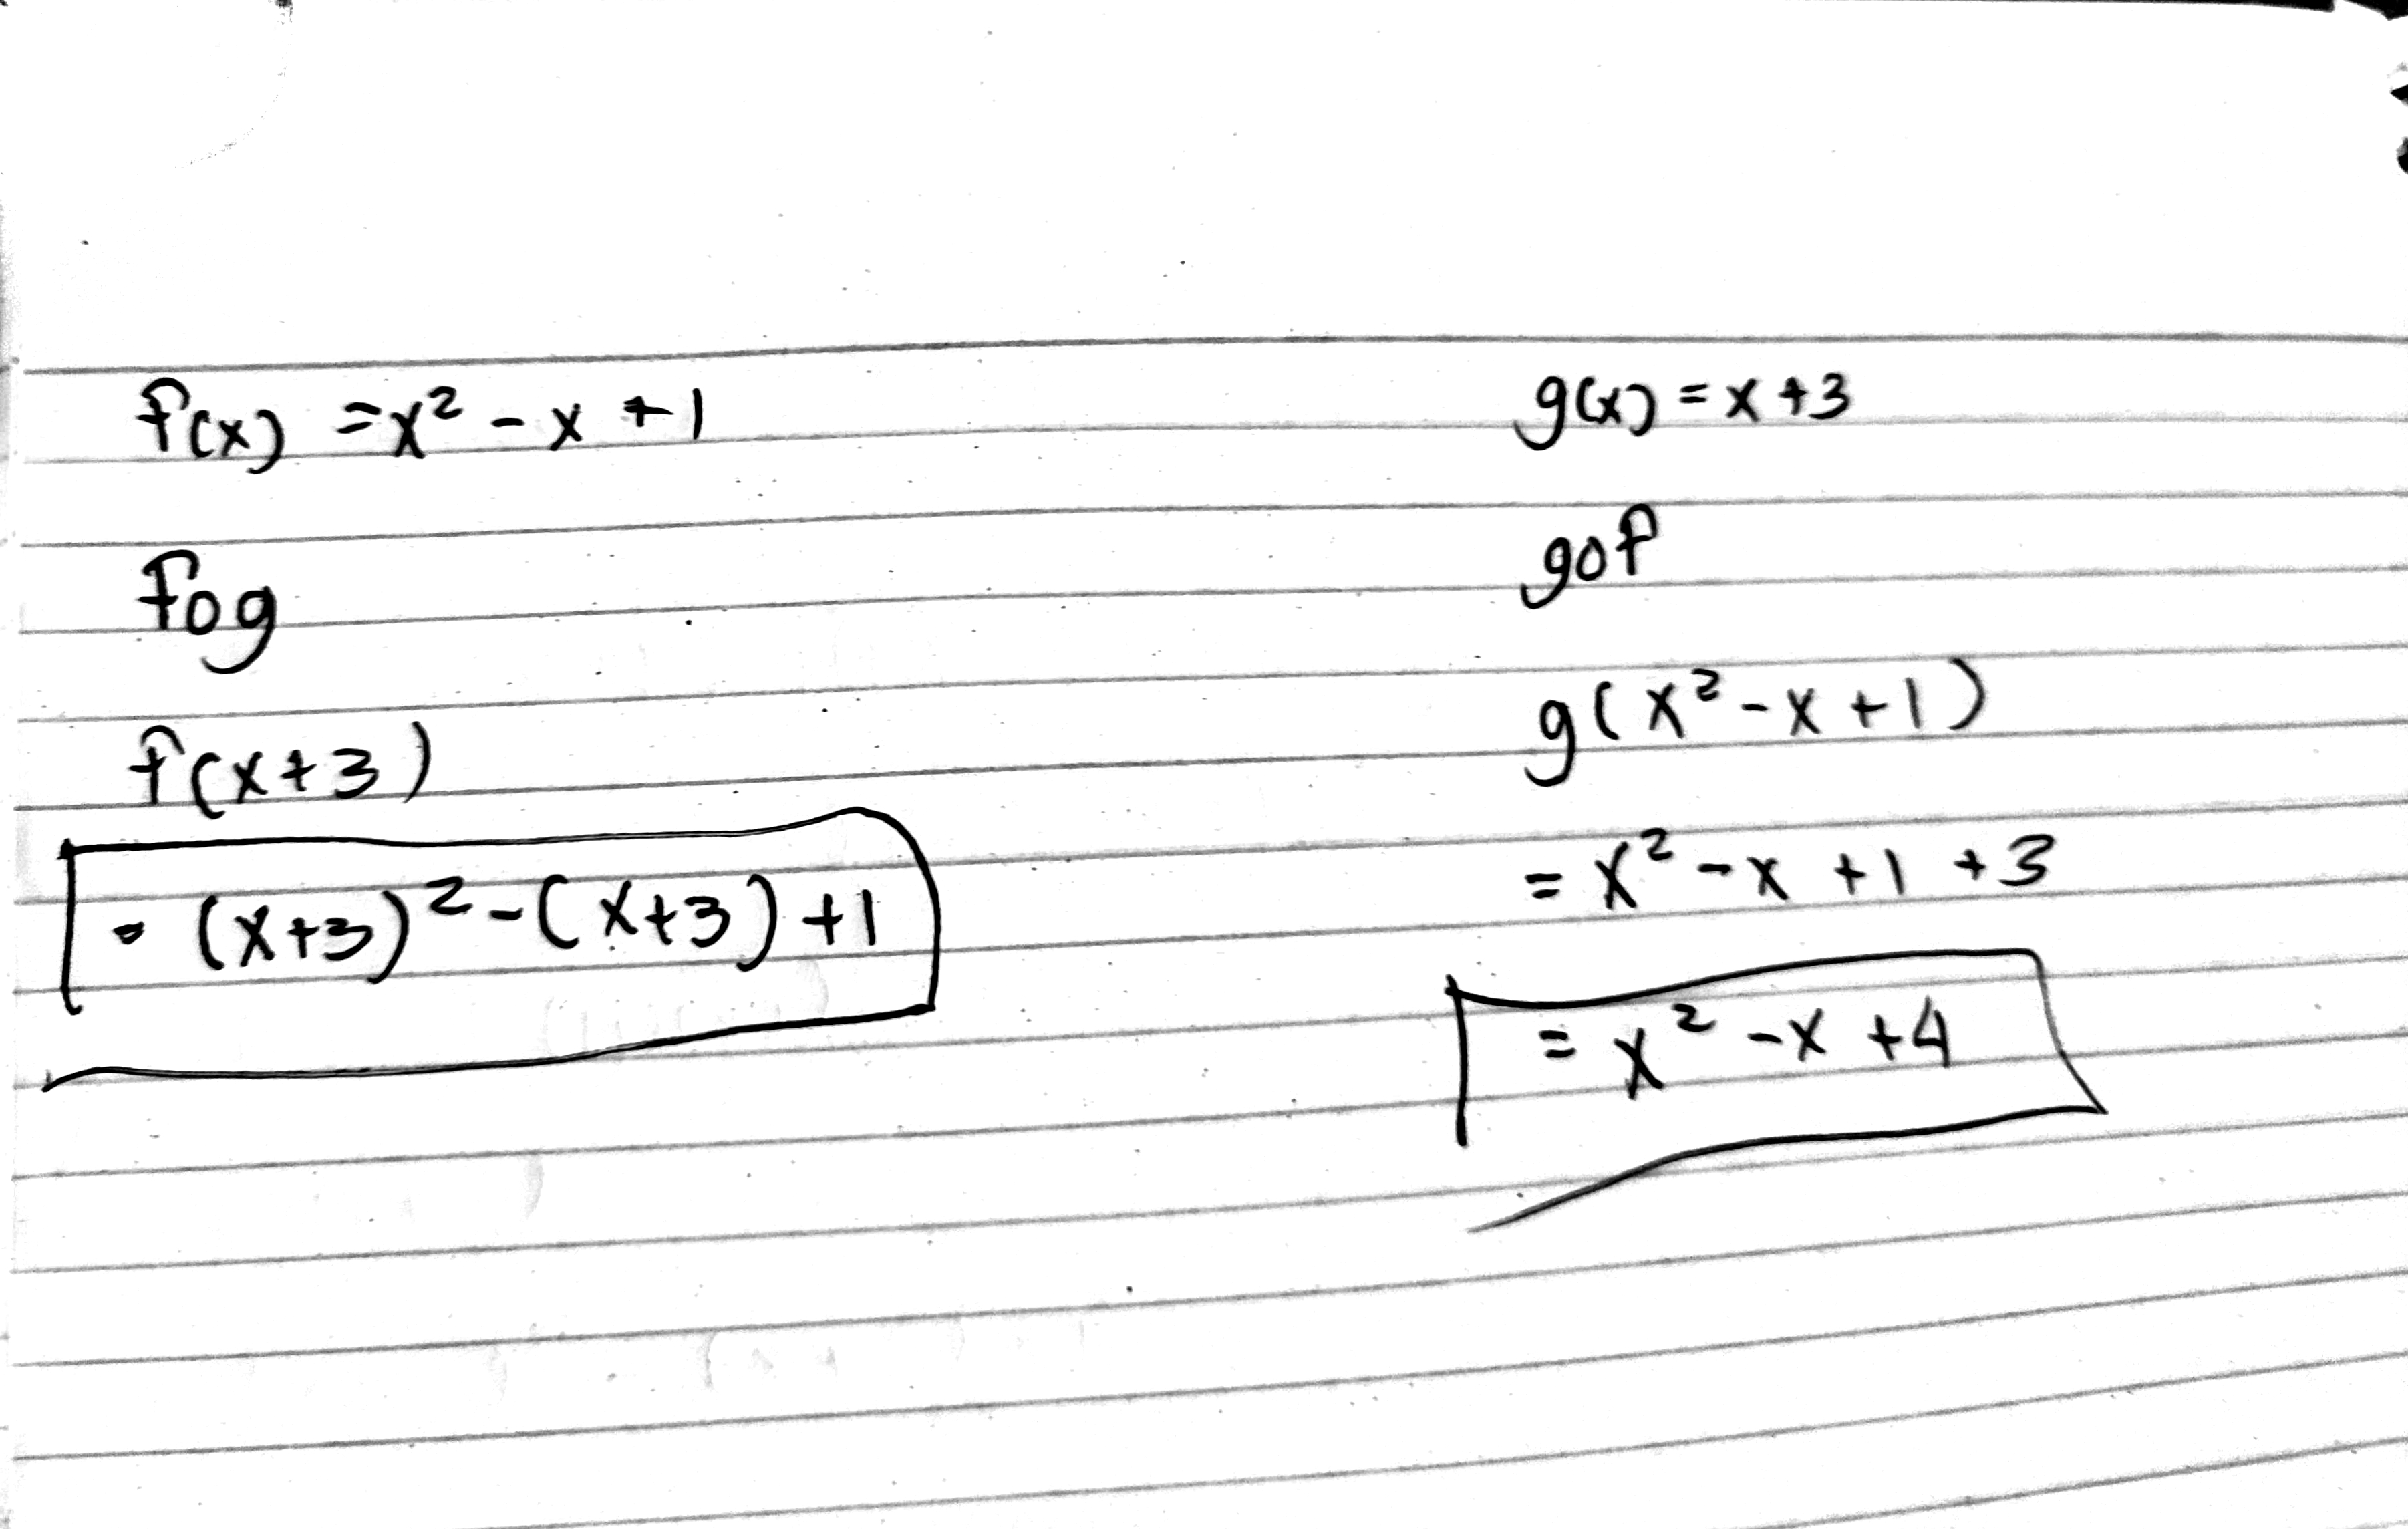 f(x) = x² - x + 1
fog
f(x+3)
= (x+3)² - (x+3) + 1
g(x) = x + 3
gof
g(x² - x + 1)
= x² - x + 1 + 3
= x² - x + 4